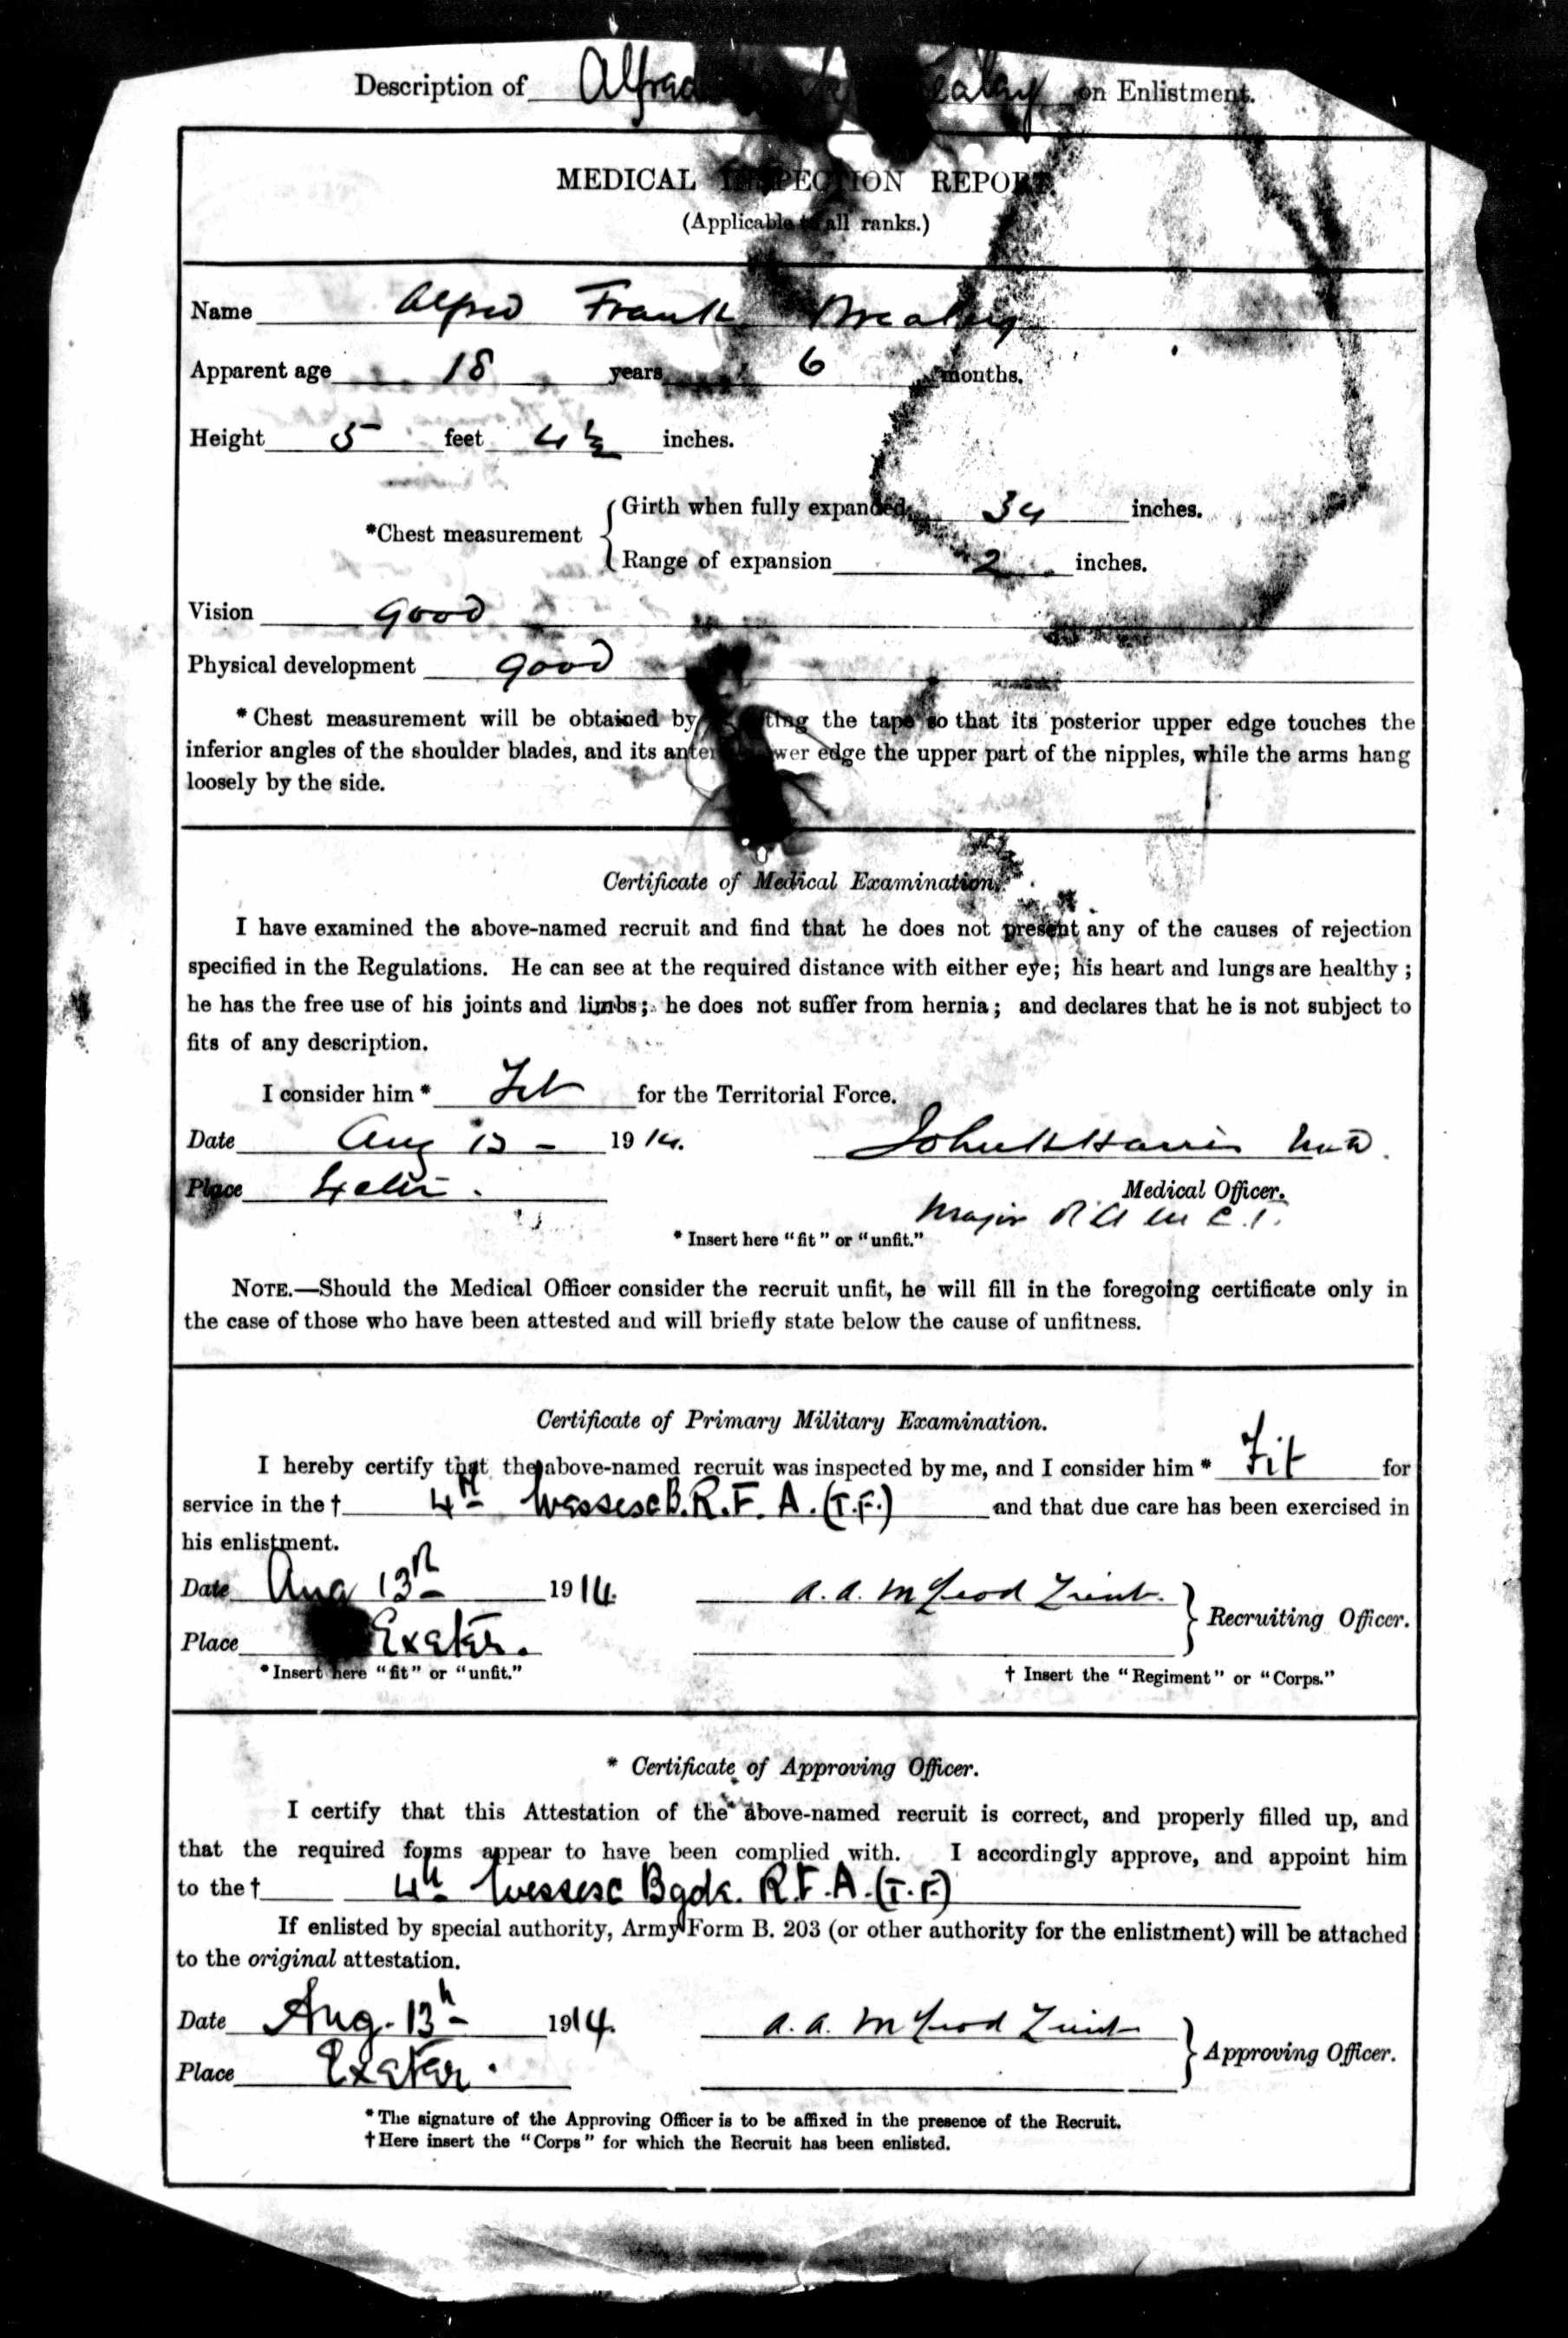 Description of Alfred ealey on Enlistment.
MEDICAL INSPECTION REPORT.
(Applicable to all ranks.)
Name Alfred Frank Brealey
Apparent age 18 years 6 months.
Height 5 feet 4½ inches.
*Chest measurement { Girth when fully expanded 34 inches.
Range of expansion 2 inches.
Vision good
Physical development good
* Chest measurement will be obtained by ting the tape so that its posterior upper edge touches the
inferior angles of the shoulder blades, and its anterior lower edge the upper part of the nipples, while the arms hang
loosely by the side.
Certificate of Medical Examination.
I have examined the above-named recruit and find that he does not present any of the causes of rejection
specified in the Regulations. He can see at the required distance with either eye; his heart and lungs are healthy;
he has the free use of his joints and limbs; he does not suffer from hernia; and declares that he is not subject to
fits of any description.
I consider him * Fit for the Territorial Force.
Date Aug 13 - 1914.
John H Harris M.D.
Place Exeter.
Medical Officer.
Major R A M C. T.
* Insert here "fit" or "unfit."
NOTE.—Should the Medical Officer consider the recruit unfit, he will fill in the foregoing certificate only in
the case of those who have been attested and will briefly state below the cause of unfitness.
Certificate of Primary Military Examination.
I hereby certify that the above-named recruit was inspected by me, and I consider him * Fit for
service in the † 4th Wessex B. R. F. A. (T.F.) and that due care has been exercised in
his enlistment.
Date Aug 13th 1914.
A. A. McLeod Lieut. } Recruiting Officer.
Place Exeter.
* Insert here "fit" or "unfit."
† Insert the "Regiment" or "Corps."
* Certificate of Approving Officer.
I certify that this Attestation of the above-named recruit is correct, and properly filled up, and
that the required forms appear to have been complied with. I accordingly approve, and appoint him
to the † 4th Wessex Bgde. R.F.A. (T.F.)
If enlisted by special authority, Army Form B. 203 (or other authority for the enlistment) will be attached
to the original attestation.
Date Aug. 13th 1914.
A. A. McLeod Lieut } Approving Officer.
Place Exeter.
* The signature of the Approving Officer is to be affixed in the presence of the Recruit.
† Here insert the "Corps" for which the Recruit has been enlisted.